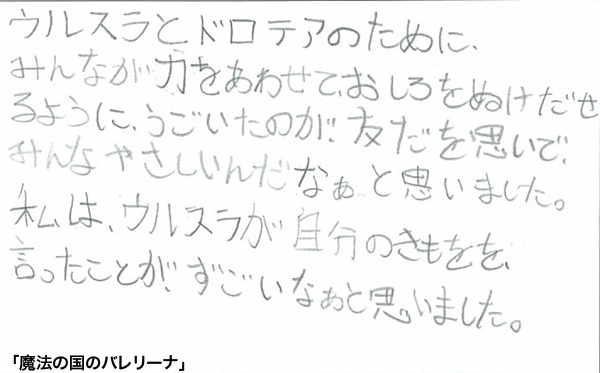 ウルスラとドロテアのために、
みんなが力をあわせて、おしろをぬけだせ
るように、うごいたのが、友だを思いで、
みんなやさしいんだなぁと思いました。
私は、ウルスラが自分のきもをを、
言ったことが、すごいなぁと思いました。
「魔法の国のバレリーナ」